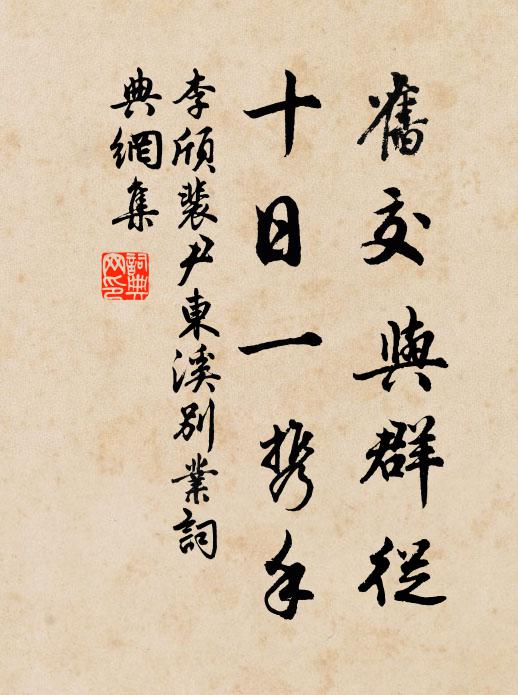 舊交與群從
十日一携手
李頎裴尹東溪別業詞
典網集
詞典
网印